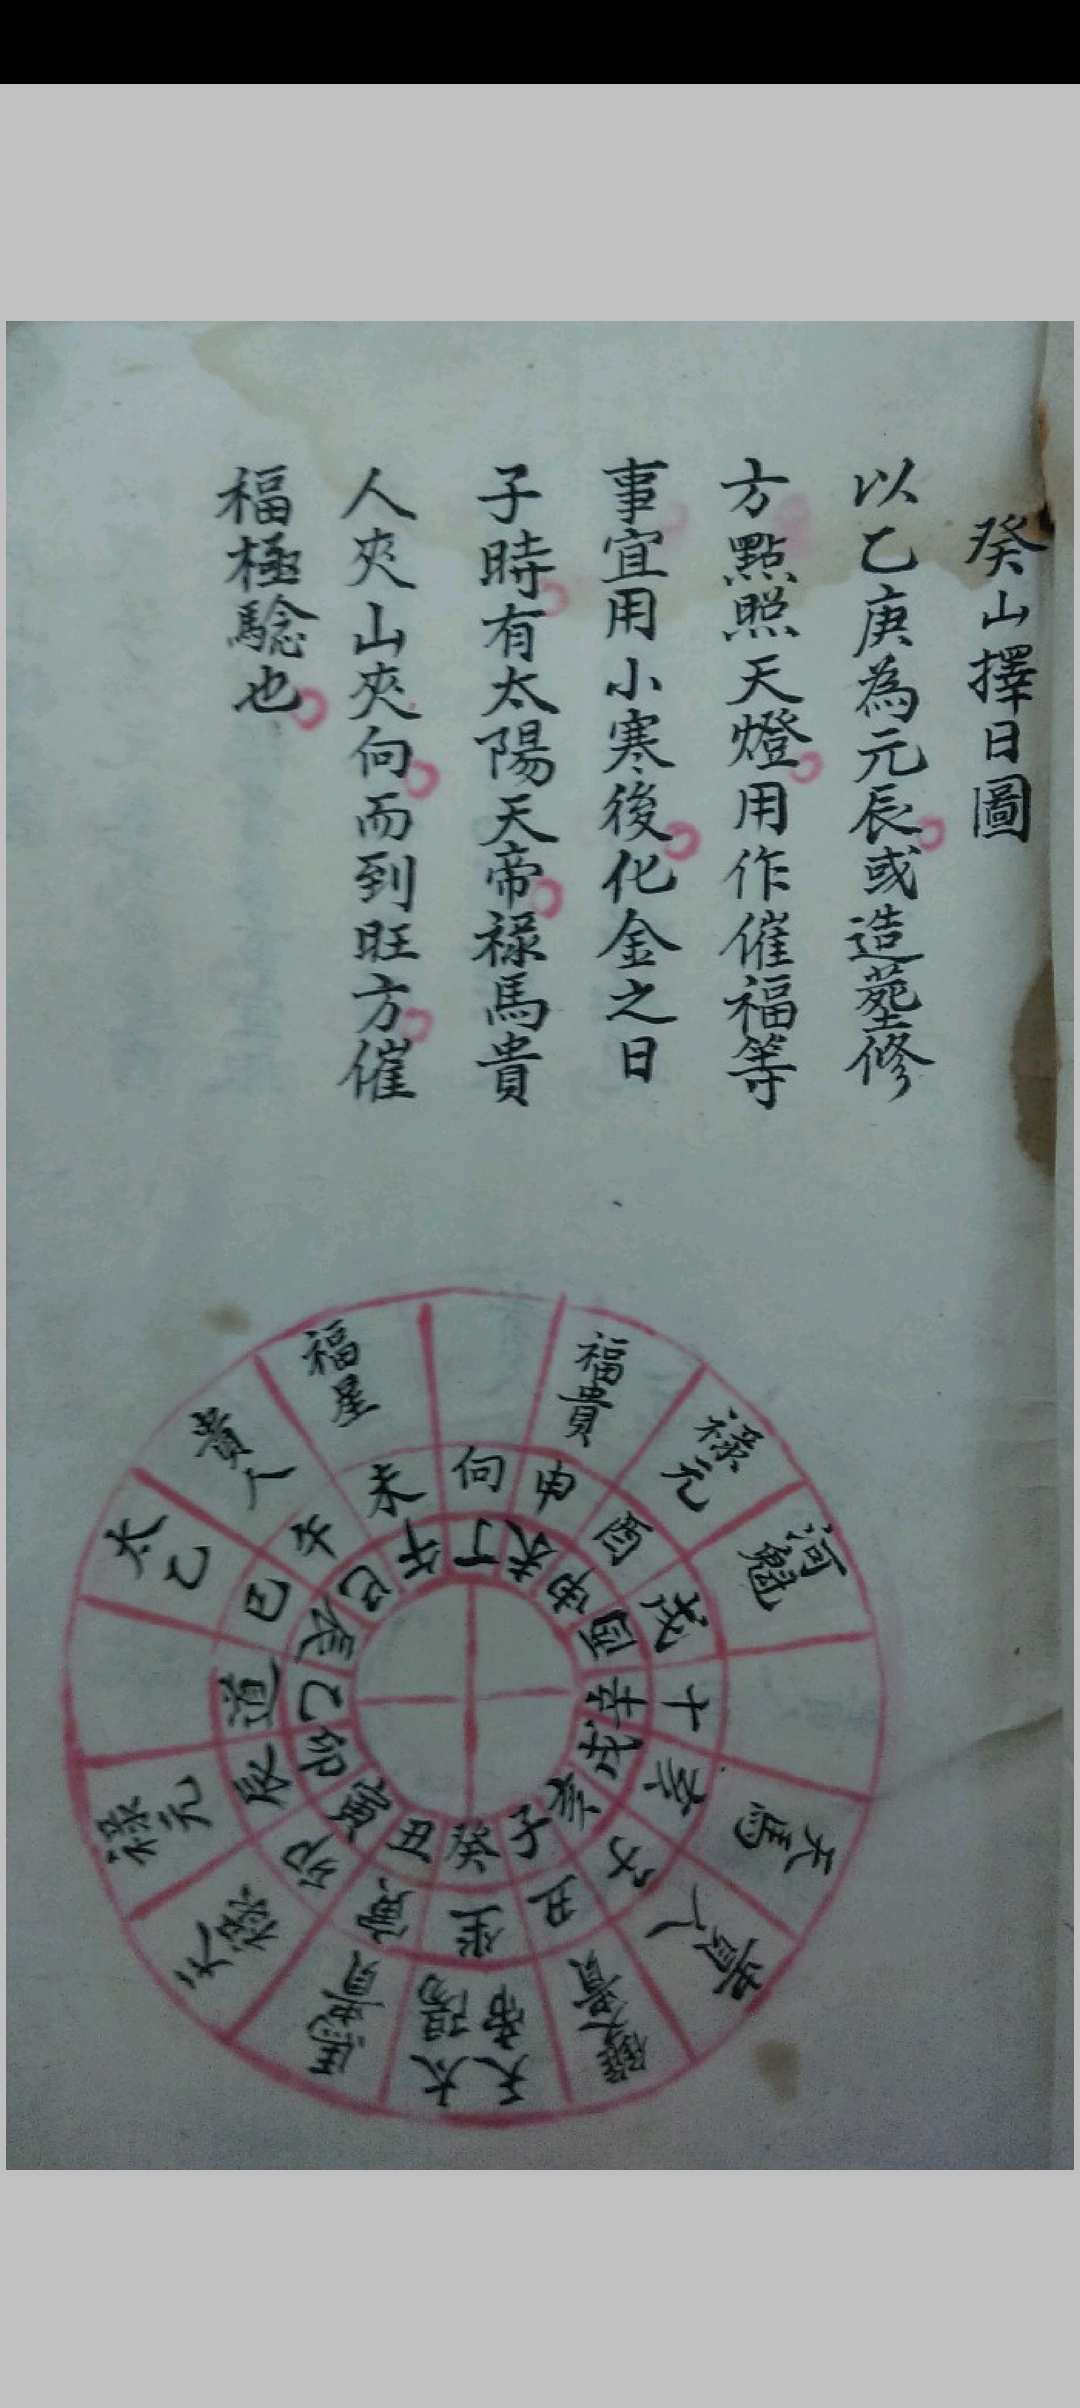 癸山擇日圖
以乙庚為元辰或造塟修
方點照天燈用作催福等
事宜用小寒後化金之日
子時有太陽天帝祿馬貴
人夾山夾向而到旺方催
福極驗也
福貴
祿元
河魁
天馬
貴人
天帝
太陽
馬貴
祿元
太乙
貴人
福星
向
申
酉
戌
亥
丑
坐
寅
卯
辰
巳
午
未
丁
未
申
酉
辛
戌
亥
子
癸
丑
寅
卯
乙
辰
巳
午